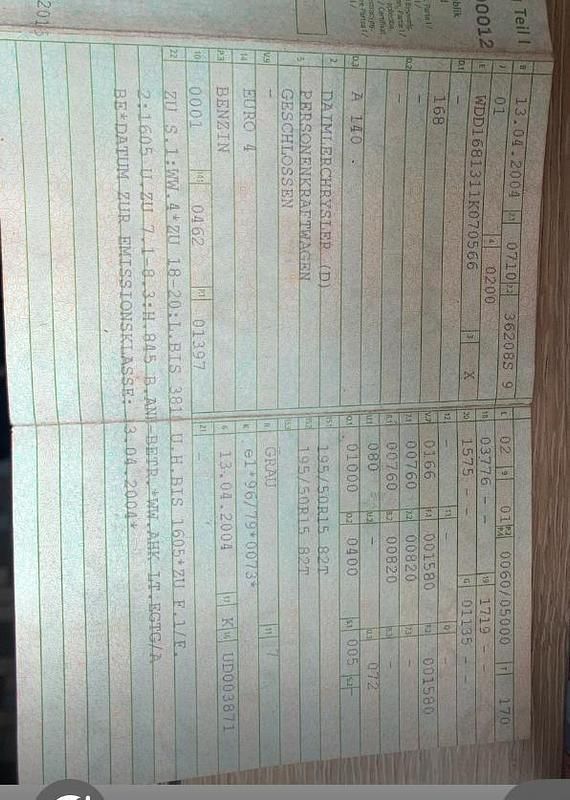 Teil I
0012
B 13.04.2004 2.1 0710 2.2 36208S 9
J 01 4 0200
E WDD1681311K070566 3 X
D.1 -
168
D.2 -
-
D.3 A 140 .
2 DAIMLERCHRYSLER (D)
5 PERSONENKRAFTWAGEN
GESCHLOSSEN
V.9 -
14 EURO 4
P.3 BENZIN
10 0001 14.1 0462 P.1 01397
L 02 9 01 P.2 P.4 0060/05000 T 170
18 03776 - - 19 1719 - -
20 1575 - - G 01135 - -
12 - 13 - Q -
V.7 0166 F.1 001580 F.2 001580
7.1 00760 7.2 00820 7.3 -
8.1 00760 8.2 00820 8.3 -
U.1 080 U.2 - U.3 072
O.1 01000 O.2 0400 S.1 005 S.2 -
15.1 195/50R15 82T
15.2 195/50R15 82T
15.3
R GRAU 11 7
K e1*96/79*0073*
6 13.04.2004 17 K 16 UD003871
21 -
22 ZU S.1:WW.4*ZU 18-20:L.BIS 381 U.H.BIS 1605*ZU F.1/F.
2:1605 U.ZU 7.1-8.3:H.845 B.ANH-BETR.*WW.AHK LT.EGTG/A
BE*DATUM ZUR EMISSIONSKLASSE: 13.04.2004*